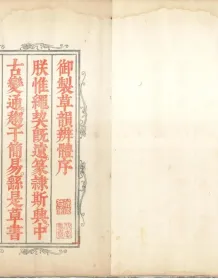 御製草韻辨體序
朕惟繩契既遠篆隸斯興中
古變通趨于簡易繇是草書